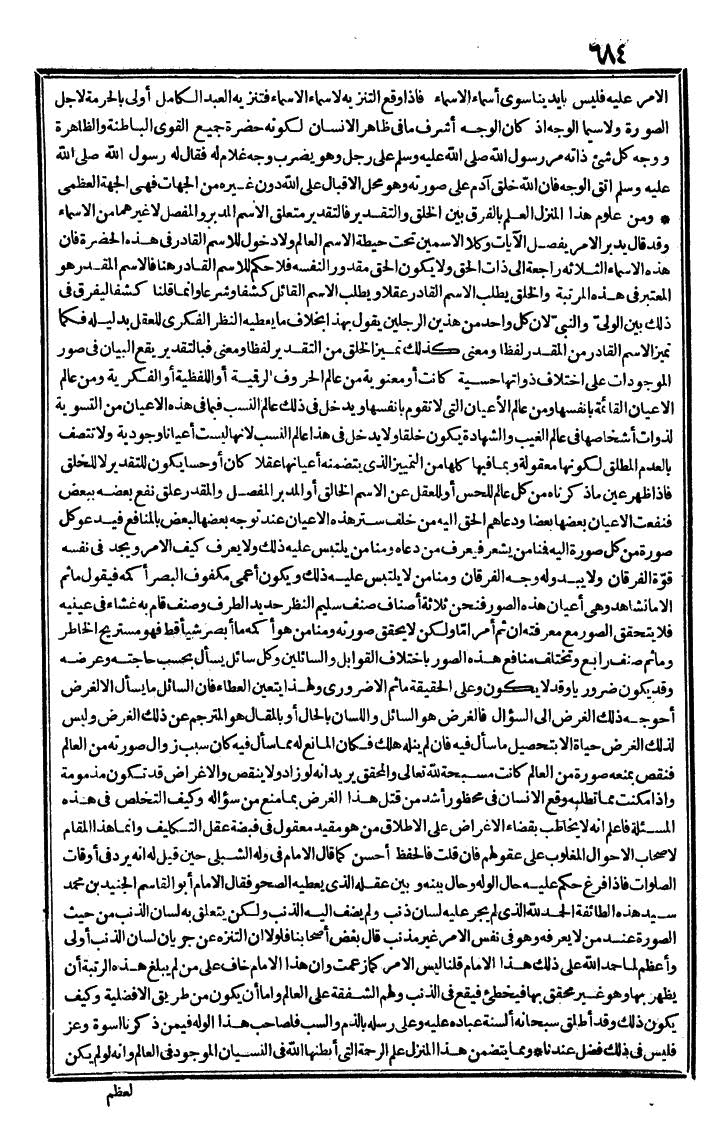 ٦٨٤
الامر عليه فليس بايدينا سوى أسماء الاسماء فاذا وقع التنزيه لاسماء الاسماء فتنزيه العبد الكامل أولى بالحرمة لاجل
الصورة ولاسيما الوجه اذ كان الوجه أشرف ما فى ظاهر الانسان لكونه حضرة جميع القوى الباطنة والظاهرة
ووجه كل شئ ذاته مر رسول الله صلى الله عليه وسلم على رجل وهو يضرب وجه غلام له فقال له رسول الله صلى الله
عليه وسلم اتق الوجه فان الله خلق آدم على صورته وهو محل الاقبال على الله دون غيره من الجهات فهى الجهة العظمى
* ومن علوم هذا المنزل العلم بالفرق بين الخلق والتقدير فالتقدير متعلق الاسم المدبر والمفصل لا غيرهما من الاسماء
وقد قال يدبر الامر يفصل الآيات وكلا الاسمين تحت حيطة الاسم العالم ولا دخول للاسم القادر فى هذه الحضرة فان
هذه الاسماء الثلاثة راجعة الى ذات الحق ولا يكون الحق مقدور النفسه فلا حكم للاسم القادر هنا فالاسم المقدر هو
المعتبر فى هذه المرتبة والخلق يطلب الاسم القادر عقلا ويطلب الاسم القائل كشفا وشرعا وانما قلنا كشفا ليفرق فى
ذلك بين الولى والنبى لان كل واحد من هذين الرجلين يقول بهذا بخلاف ما يعطيه النظر الفكرى للعقل بدليله فكما
تميز الاسم القادر من المقدر لفظا ومعنى كذلك تميز الخلق من التقدير لفظا ومعنى فبالتقدير يقع البيان فى صور
الموجودات على اختلاف ذواتها حسية كانت أو معنوية من عالم الحروف الرقمية أو اللفظية أو الفكرية ومن عالم
الاعيان القائمة بانفسها ومن عالم الأعيان التى لا تقوم بانفسها ويدخل فى ذلك عالم النسب فما فى هذه الاعيان من التسوية
لذوات أشخاصها فى عالم الغيب والشهادة يكون خلقا ولا يدخل فى هذا عالم النسب لانها ليست أعيانا وجودية ولا تتصف
بالعدم المطلق لكونها معقولة وبما فيها كلها من التمييز الذى يتضمنه أعيانها عقلا كان أو حسا يكون للتقدير لا للخلق
فاذا ظهر عين ما ذكرناه من كل عالم للحس أو للعقل عن الاسم الخالق أو المدبر المفصل والمقدر علق نفع بعضه ببعض
فنفعت الاعيان بعضها بعضا ودعاهم الحق اليه من خلف ستر هذه الاعيان عند توجه بعضها لبعض بالمنافع فيدعو كل
صورة من كل صورة اليه فنا من يشعر فيعرف من دعاه ومنا من يلتبس عليه ذلك ولا يعرف كيف الامر ويجد فى نفسه
قوّة الفرقان ولا يبدو له وجه الفرقان ومنا من لا يلتبس عليه ذلك ويكون أعمى مكفوف البصر أكمه فيقول ماثم
الا ما نشاهد وهى أعيان هذه الصور فنحن ثلاثة أصناف صنف سليم النظر حديد الطرف وصنف قام به غشاء فى عينيه
فلا يتحقق الصور مع معرفته ان ثم أمرا ما ولكن لا يحقق صورته ومنا من هو أكمه ما أبصر شيأ قط فهو مستريح الخاطر
وما ثم صنف رابع وتختلف منافع هذه الصور باختلاف القوابل والسائلين وكل سائل يسأل بحسب حاجته وغرضه
وقد يكون ضروريا وقد لا يكون وعلى الحقيقة ماثم الاضرورى ولهذا يتعين العطاء فان السائل ما يسأل الا لغرض
أحوجه ذلك الغرض الى السؤال فالغرض هو السائل واللسان بالحال أو بالمقال هو المترجم عن ذلك الغرض وليس
لذلك الغرض حياة الا بتحصيل ما سأل فيه فان لم ينله هلك فكان المانع له مما سأل فيه كان سبب زوال صورته من العالم
فنقص بمنعه صورة من العالم كانت مسبحة لله تعالى والمحقق يريد انه لو زاد ولا ينقص والاغراض قد تكون مذمومة
واذا مكنت مما تطلبه وقع الانسان فى محظور أشد من قتل هذا الغرض بما منع من سؤاله وكيف التخلص فى هذه
المسئلة فاعلم انه لا يخاطب بقضاء الاغراض على الاطلاق من هو مقيد معقول فى قبضة عقل التكليف وانما هذا المقام
لاصحاب الاحوال المغلوب على عقولهم فان قلت فالحفظ أحسن كما قال الامام فى وله الشبلى حين قيل له انه يرد فى أوقات
الصلوات فاذا فرغ حكم عليه حال الوله وحال بينه وبين عقله الذى يعطيه الصحو فقال الامام أبو القاسم الجنيد بن محمد
سيد هذه الطائفة الحمد لله الذى لم يجر عليه لسان ذنب ولم يضف اليه الذنب ولكن يتعلق به لسان الذنب من حيث
الصورة عند من لا يعرفه وهو فى نفس الامر غير مذنب قال بعض أصحابنا فلولا ان التنزه عن جريان لسان الذنب أولى
وأعظم لما حمد الله على ذلك هذا الامام قلنا ليس الامر كما زعمت وان هذا الامام خاف على من لم يبلغ هذه الرتبة أن
يظهر بها وهو غير محقق بها فيخطئ فيقع فى الذنب ولهم الشفقة على العالم واما أن يكون من طريق الافضلية وكيف
يكون ذلك وقد أطلق سبحانه ألسنة عباده عليه وعلى رسله بالذم والسب فلصاحب هذا الوله فيمن ذكرنا اسوة وعز
فليس فى ذلك فضل عندنا * ومما يتضمن هذا المنزل علم الرحمة التى أبطنها الله فى النسيان الموجود فى العالم وانه لو لم يكن
لعظم